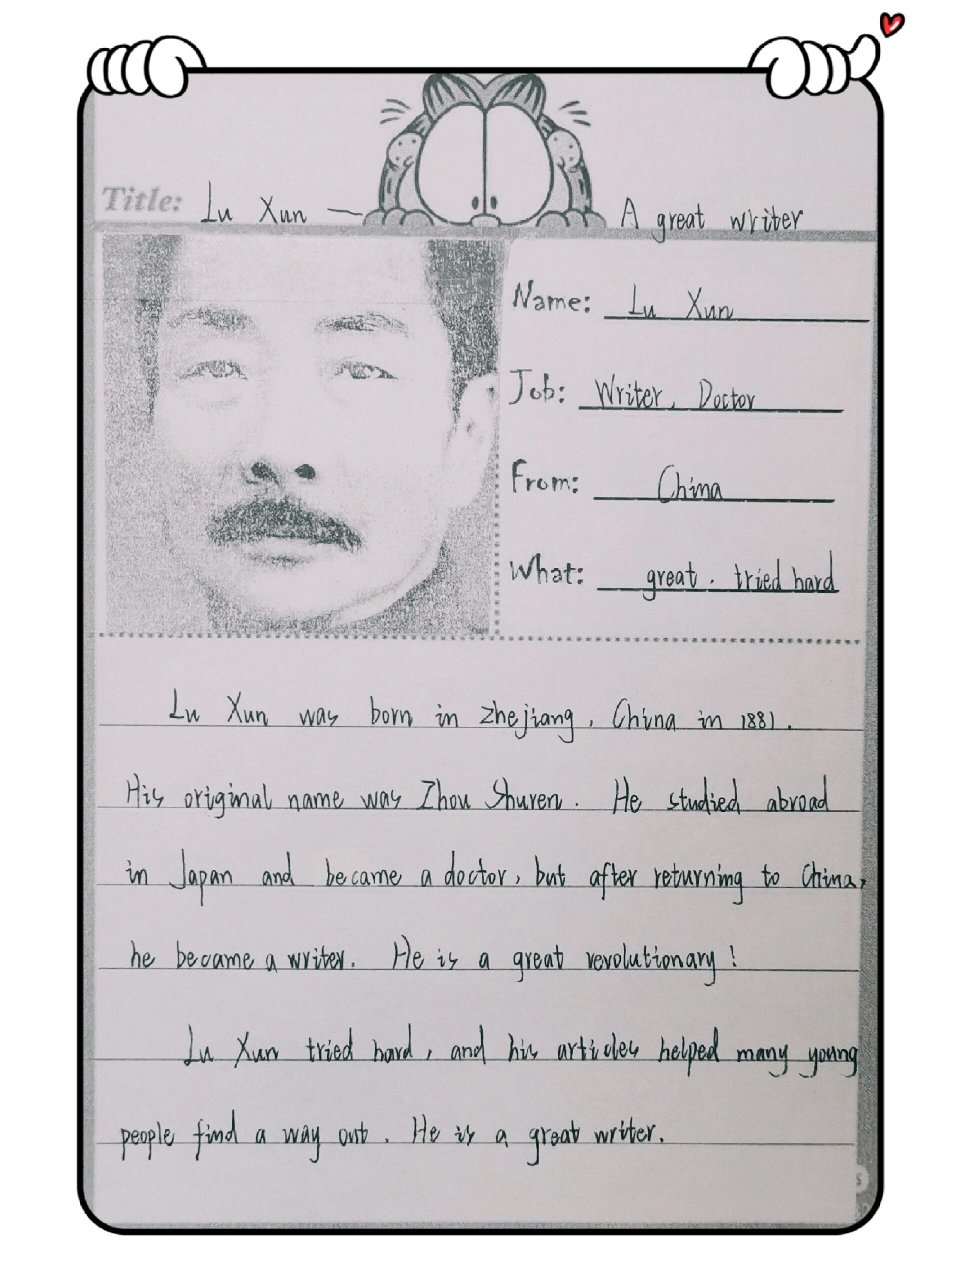 Title: Lu Xun — A great writer
Name: Lu Xun
Job: Writer, Doctor
From: China
What: great, tried hard
Lu Xun was born in Zhejiang, China in 1881.
His original name was Zhou Shuren. He studied abroad
in Japan and became a doctor, but after returning to China,
he became a writer. He is a great revolutionary!
Lu Xun tried hard, and his articles helped many young
people find a way out. He is a great writer.